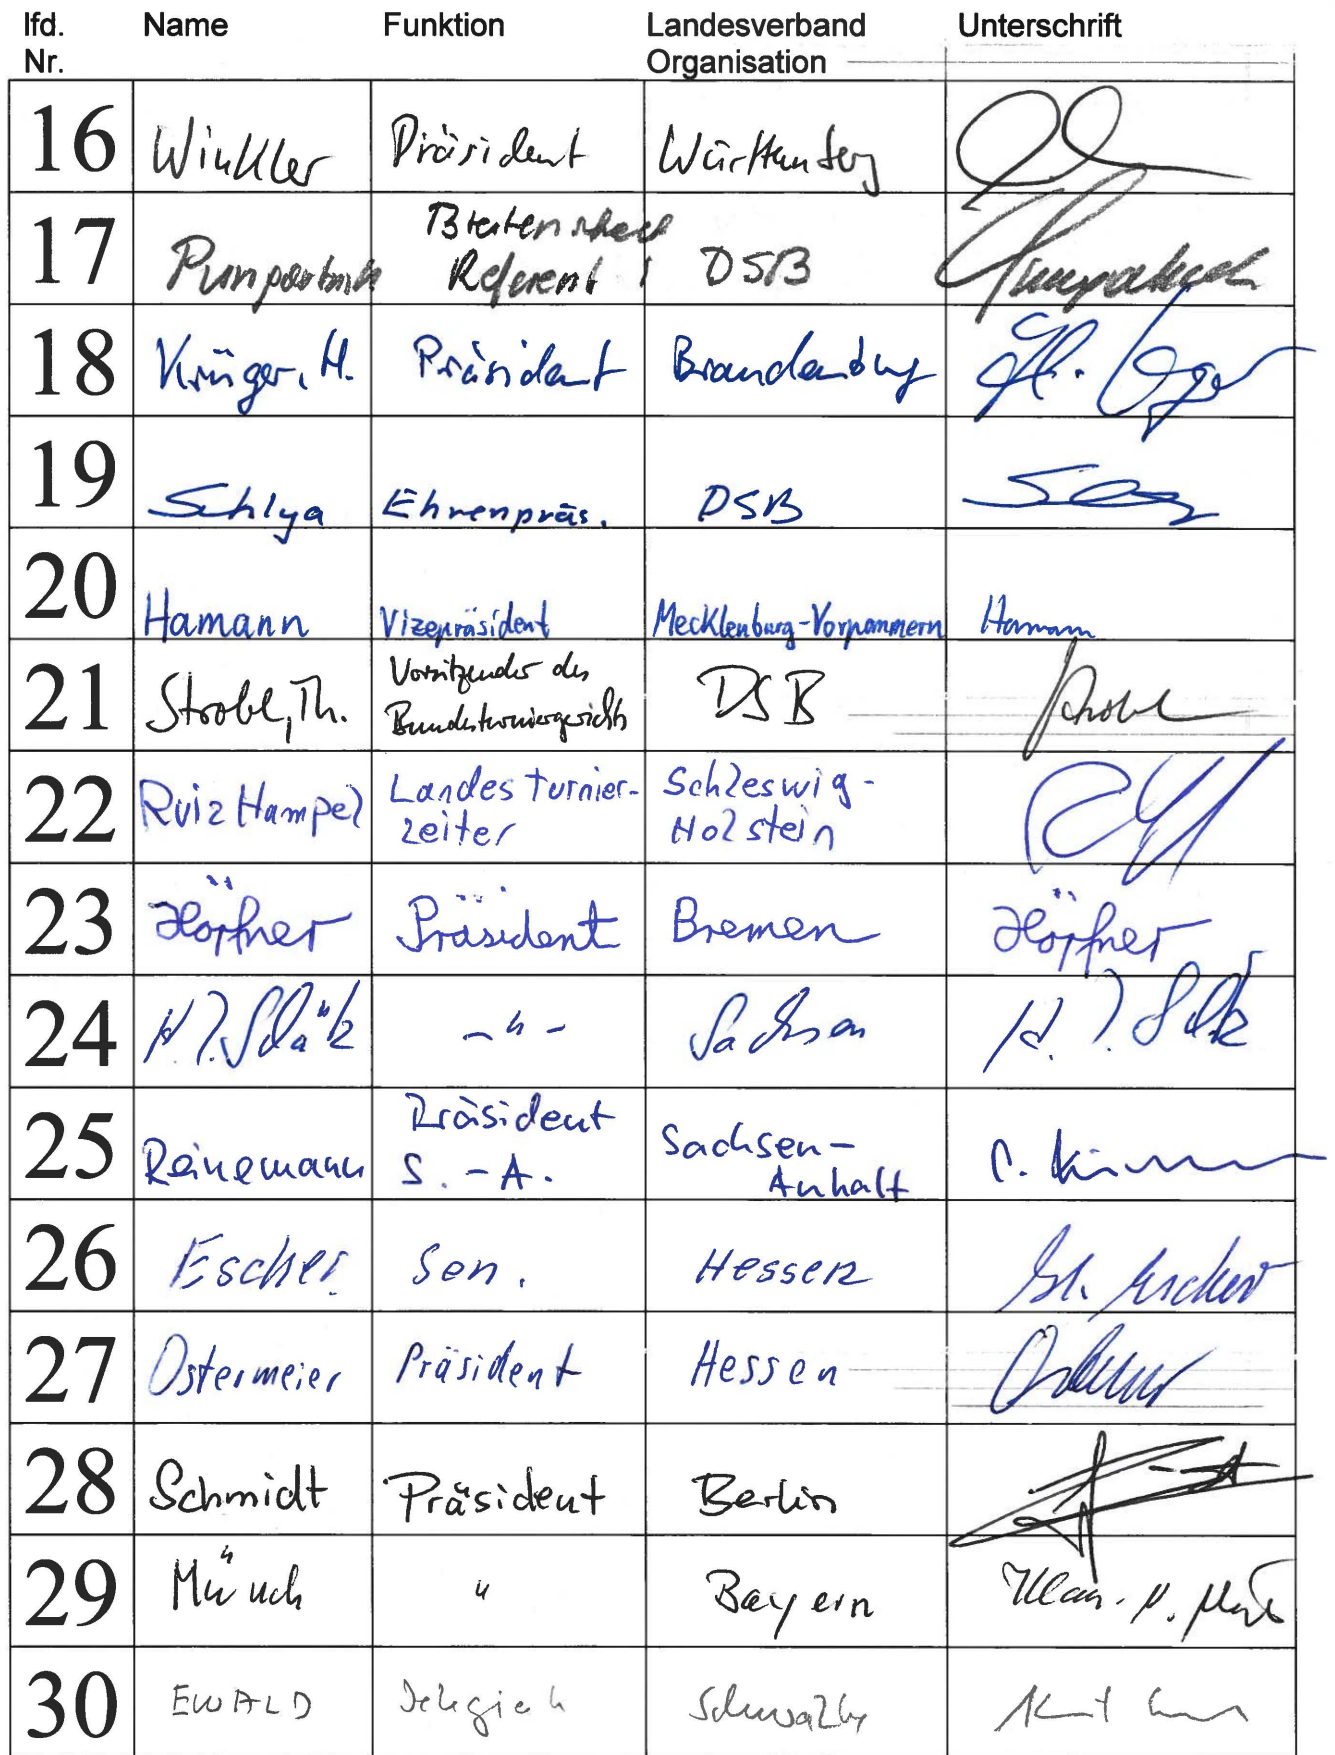 lfd. Nr. Name Funktion Landesverband Organisation Unterschrift
16 Winkler Präsident Württemberg
17 Breitenschach Referent DSB
18 Krüger, H. Präsident Brandenburg
19 Schlya Ehrenpräs. DSB
20 Hamann Vizepräsident Mecklenburg-Vorpommern Hamann
21 Strobl, Th. Vorsitzender des Bundesturniergerichts DSB Strobl
22 Ruiz Hampel Landesturnier- leiter Schleswig- Holstein
23 Höpfner Präsident Bremen Höpfner
24 -"- Sachsen
25 Reinemann Präsident S.-A. Sachsen- Anhalt
26 Escher Sen. Hessen Escher
27 Ostermeier Präsident Hessen
28 Schmidt Präsident Berlin
29 Münch " Bayern
30 EWALD